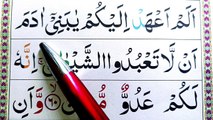 اَلَمْ اَعْهَدْ اِلَيْكُمْ يٰبَنِيْٓ اٰدَمَ
اَنْ لَّا تَعْبُدُوا الشَّيْطٰنَ ۚ اِنَّهٗ
لَكُمْ عَدُوٌّ مُّبِيْنٌ ۶۰ وَّاَنِ